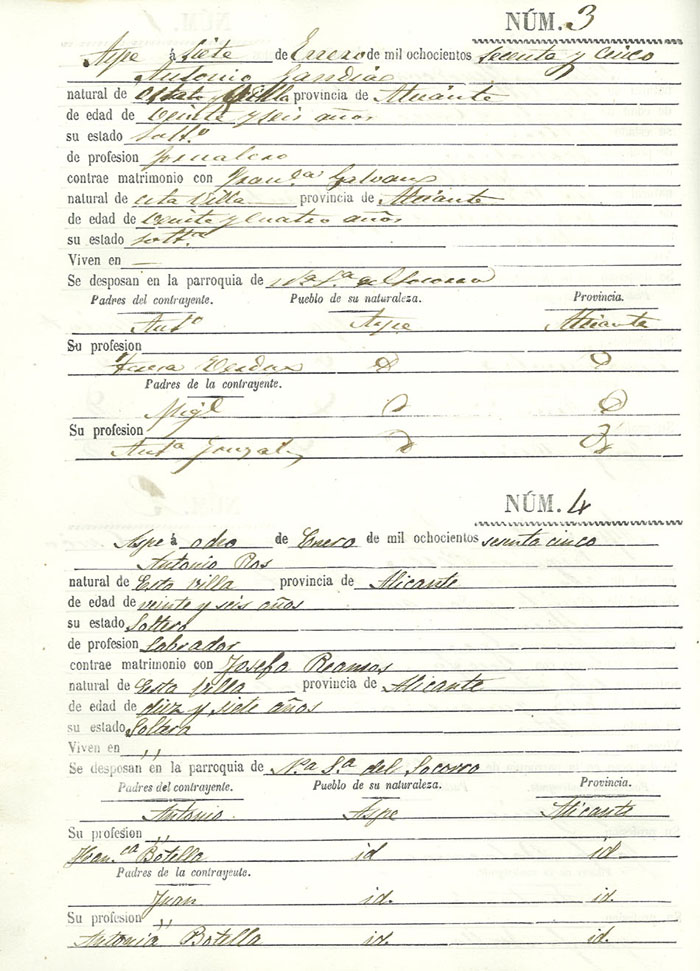 NÚM. 3
Aspe á siete de Enero de mil ochocientos sesenta y cinco
Antonio
natural de esta Villa provincia de Alicante
de edad de veinte y seis años
su estado soltº
de profesion Jornalero
contrae matrimonio con Franca Galvañ
natural de esta Villa provincia de Alicante
de edad de veinte y cuatro años
su estado soltª
Viven en —
Se desposan en la parroquia de Nª Sª del Socorro
Padres del contrayente. Pueblo de su naturaleza. Provincia.
Antº Aspe Alicante
Su profesion
Teresa
Padres de la contrayente.
Migl
Su profesion
Antª Gonzal
NÚM. 4
Aspe á ocho de Enero de mil ochocientos sesenta cinco
Antonio Ros
natural de Esta Villa provincia de Alicante
de edad de veinte y seis años
su estado Soltero
de profesion Labrador
contrae matrimonio con Josefa Reamos
natural de Esta Villa provincia de Alicante
de edad de diez y siete años
su estado Soltera
Viven en ,,
Se desposan en la parroquia de Nª Sª del Socorro
Padres del contrayente. Pueblo de su naturaleza. Provincia.
Antonio Aspe Alicante
Su profesion ,,
Franca Botella id id.
Padres de la contrayente.
Juan id. id.
Su profesion ,,
Antonia Botella id. id.